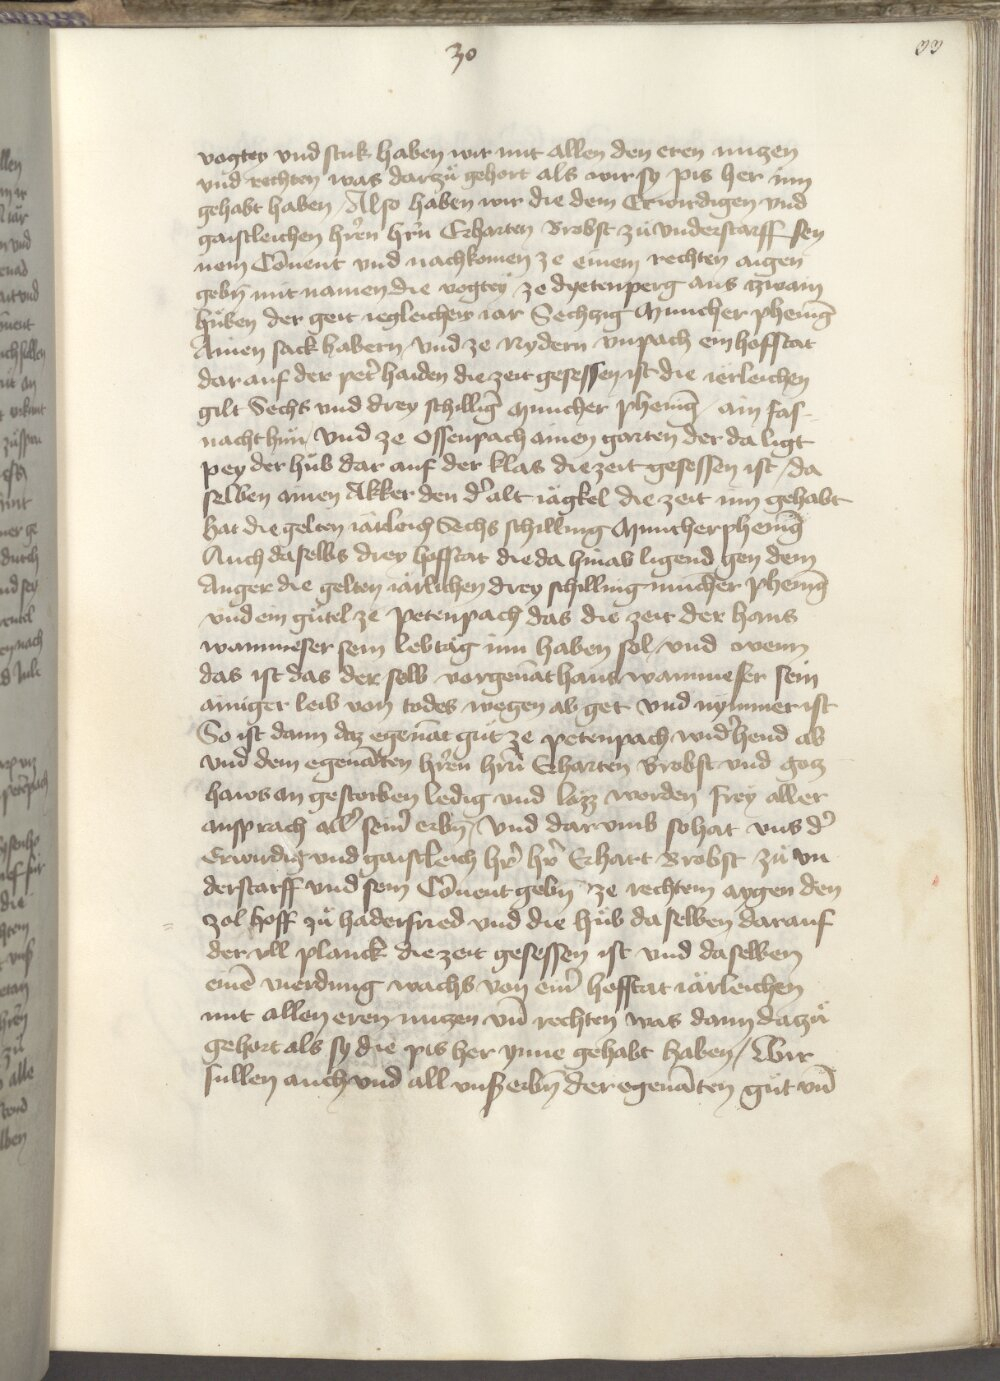 30
33
vogtey vnd stuk haben wir mit allen den eren nuczen
vnd rechten was darzů gehort als wir sy pis her inn
gehabt haben / Also haben wir die dem Erwirdigen vnd
gaistleichen hr̄en hr̄n Erharten Brobst zů vnderstarff sey
nem Cōuent vnd nachkomen ze einem rechten aigen
gebn̄ mit namen die vogtey ze dyetenperg aus zwain
hůben der geit iegleichew iar Sechzig Muncher phenīg
Ainen sack habern / vnd ze Nydern vnpach ein hofstat
dar auf der pet̄ haiden die zeit gesessen ist die ierleichen
gilt Sechs vnd drey schillīg muncher phenīg / ain fas-
nacht hůn / vnd ze Ossenpach ainen garten der da ligt
pey der hůb dar auf der klas die zeit gesessen ist / da
selben ainen Akker den d' alt iägkel die zeit inn gehabt
hat die gelten iärleich Sechs schilling Muncher phenīg
Auch daselbs drey hofstat die da hinab ligend gen dem
Anger die gelten iärlichen drey schilling muncher phenīg
vnd ein gůtel ze petenpach das die zeit der hans
wammeser sein lebtäg inn haben sol / vnd wenn
das ist das der selb vorgenāt hans wammeser sein
ainiger leib von todes wegen ab get vnd nymmer ist
So ist dann daz egenāt gůt ze petenpach wid'hend ab
vnd dem egenāten hr̄en hr̄n Erharten Brobst vnd gotz
haws an gestorben ledig vnd lozz worden frey aller
ansprach all' sein' erbn̄ / vnd dar vmb so hat vns d'
Erwirdig vnd gaistleich hr̄ hr̄ Erhart Brobst zů vn
derstarff vnd sein Cōuent gebn̄ ze rechtem aygen den
zol hoff zů haderfried vnd die hůb daselben darauf
der vll planck die zeit gesessen ist vnd daselben
einē vierdung wachs von ein' hofstat iärleichen
mit allen eren nuczen vn̄ rechten was dann dazů
gehort als sy die pis her ynne gehabt haben / Wir
sullen auch vnd all vnß erbn̄ der egenāten gůt vn̄